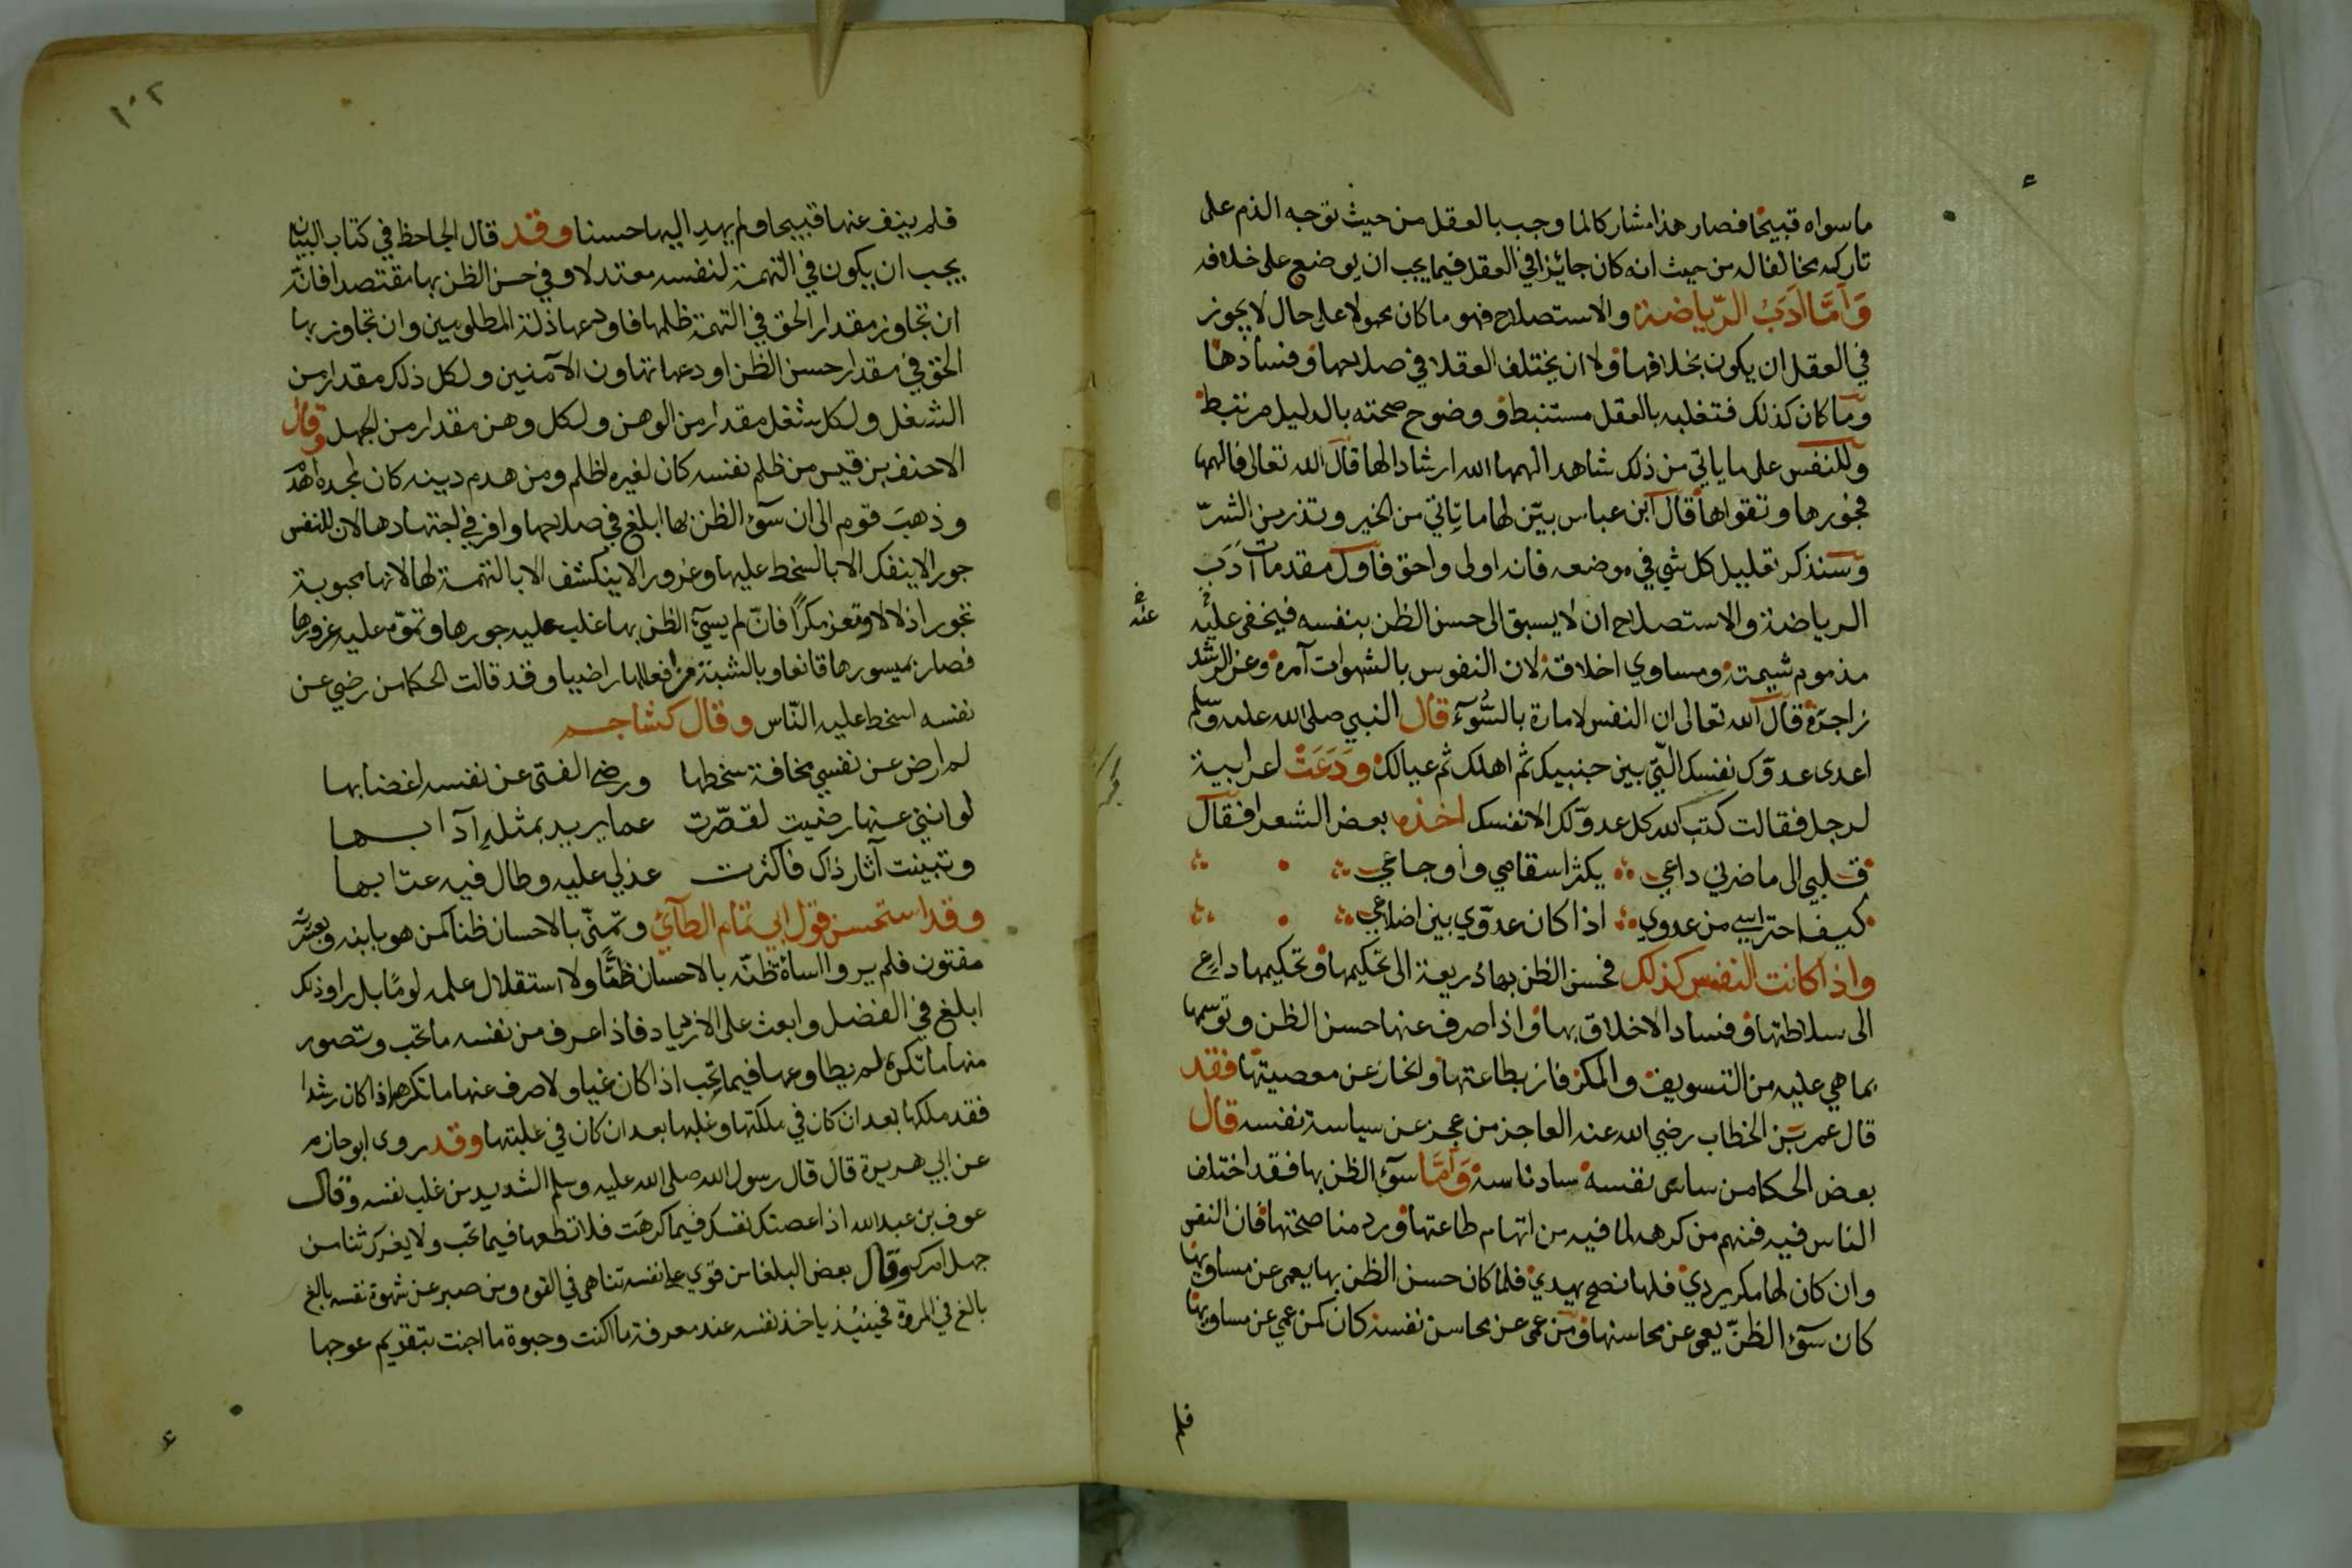 ما سواه قبيحا فصار هذا مشاركا لما وجب بالعقل من حيث توجه الذم على
تاركه مخالفا له من حيث انه كان جائزا في العقل فيما يجب ان يوضع على خلافه
وَاَمَّا اَدَبُ الرّياضة والاستصلاح فهو ما كان محمولا على حال لا يجوز
في العقل ان يكون بخلافها ولا ان يختلف العقلا في صلاحها وفسادها
وما كان كذلك فتغليبه بالعقل مستنبط ووضوح صحته بالدليل مرتبط
وللنفس على ما ياتي من ذلك شاهد الهمها الله ارشادا لها قال الله تعالى فالهمها
فجورها وتقواها قال ابن عباس بيّن لها ما تاتي من الخير وتذر من الشرّ
وسنذكر تعليل كل شي في موضعه فانه اولى واحق فاول مقدمات اَدَبِ
الرياضة والاستصلاح ان لا يسبق الى حسن الظن بنفسه فيخفى عليه
عنه
مذموم شيمته ومساوي اخلاقه لان النفوس بالشهوات آمرة وعن الرشد
زاجرة قال الله تعالى ان النفس لامارة بالسّوٓء قال النبي صلى الله عليه وسلم
اعدى عدوّك نفسك الّتي بين جنبيك ثم اهلك ثم عيالك ودَعَتْ اعرابية
لرجل فقالت كبت الله كل عدوّ لك الا نفسك اخذه بعض الشعرا فقال
قلبي الى ما ضرني داعي يكثر اسقامي واوجاعي
كيف احتراسي من عدوي اذا كان عدوّي بين اضلاعي
واذا كانت النفس كذلك فحسن الظن بها ذريعة الى تحكيمها وتحكيمها داعٍ
الى سلاطتها وفساد الاخلاق بها واذا صرف عنها حسن الظن وتوسمها
بما هي عليه من التسويف والمكر فاز بطاعتها وانحاز عن معصيتها فقد
قال عمر بن الخطاب رضي الله عنه العاجز من عجز عن سياسة نفسه قال
بعض الحكما من ساس نفسه ساد ناسه وَاَمَّا سوٓء الظن بها فقد اختلف
الناس فيه فمنهم من كرهه لما فيه من اتهام طاعتها ورد مناصحتها فان النفس
وان كان لها مكر يردي فلها نصح يهدي فلما كان حسن الظن بها يعمى عن مساويها
كان سوٓء الظنّ يعمى عن محاسنها ومن عمى عن محاسن نفسه كان كمن عمي عن مساويها
فلم
١٠٢
فلم ينف عنها قبيحا ولم يهدِ اليها حسنا وقد قال الجاحظ في كتاب البيان
يجب ان يكون في التهمة لنفسه معتدلا وفي حسن الظن بها مقتصدا فانه
ان تجاوز مقدار الحق في التهمة ظلمها فاودعها ذلة المظلومين وان تجاوز بها
الحق في مقدار حسن الظن اودعها تهاون الآمنين ولكل ذلك مقدار من
الشغل ولكل شغل مقدار من الوهن ولكل وهن مقدار من الجهل وقال
الاحنف بن قيس من ظلم نفسه كان لغيره اظلم ومن هدم دينه كان لمجده اهدم
وذهب قوم الى ان سوٓء الظن بها ابلغ في صلاحها واوفر في اجتهادها لان للنفس
جورا لا ينفك الا بالسخط عليها وغرورا لا ينكشف الا بالتهمة لها لانها محبوبة
تجور اذلالا وتعز مكرًا فانّ لم يسيء الظن بها غلب عليه جورها وتموّه عليه غرورها
فصار بميسورها قانعا وبالشبهة من افعالها راضيا وقد قالت الحكما من رضي عن
نفسه اسخط عليه النّاس وقال كشاجم
لم ارض عن نفسي مخافة سخطها ورضى الفتى عن نفسه اغضابها
لو انني عنها رضيت لقصّرت عما يريد بمثله آدابها
وتبينت آثار ذاك فاكثرت عذلي عليه وطال فيه عتابها
وقد استحسن قول ابي تمام الطآئي وتمنّى بالاحسان ظنا كمن هو بابنه وبشعره
مفتون فلم يروا اساءة ظنّه بالاحسان ظنًّا ولا استقلال علمه لومًا بل راوا ذلك
ابلغ في الفضل وابعث على الازدياد فاذا عرف من نفسه ما تجب وتصور
منها ما تكره لم يطاوعها فيما تحب اذا كان غيا ولا صرف عنها ما تكره اذا كان رشدا
فقد ملكها بعد ان كان في ملكتها وغلبها بعد ان كان في غلبتها وقد روى ابو حازم
عن ابي هريرة قال قال رسول الله صلى الله عليه وسلم الشديد من غلب نفسه وقال
عوف بن عبد الله اذا عصتك نفسك فيما كرهت فلا تطعها فيما تحب ولا يغرك ثنا من
جهل امرك وقال بعض البلغا من قوي على نفسه تناهى في القوه ومن صبر عن شهوة نفسه بالغ
بالغ في المروة فحينئذ ياخذ نفسه عند معرفة ما اكنت وخبوة ما اجنت بتقويم عوجها